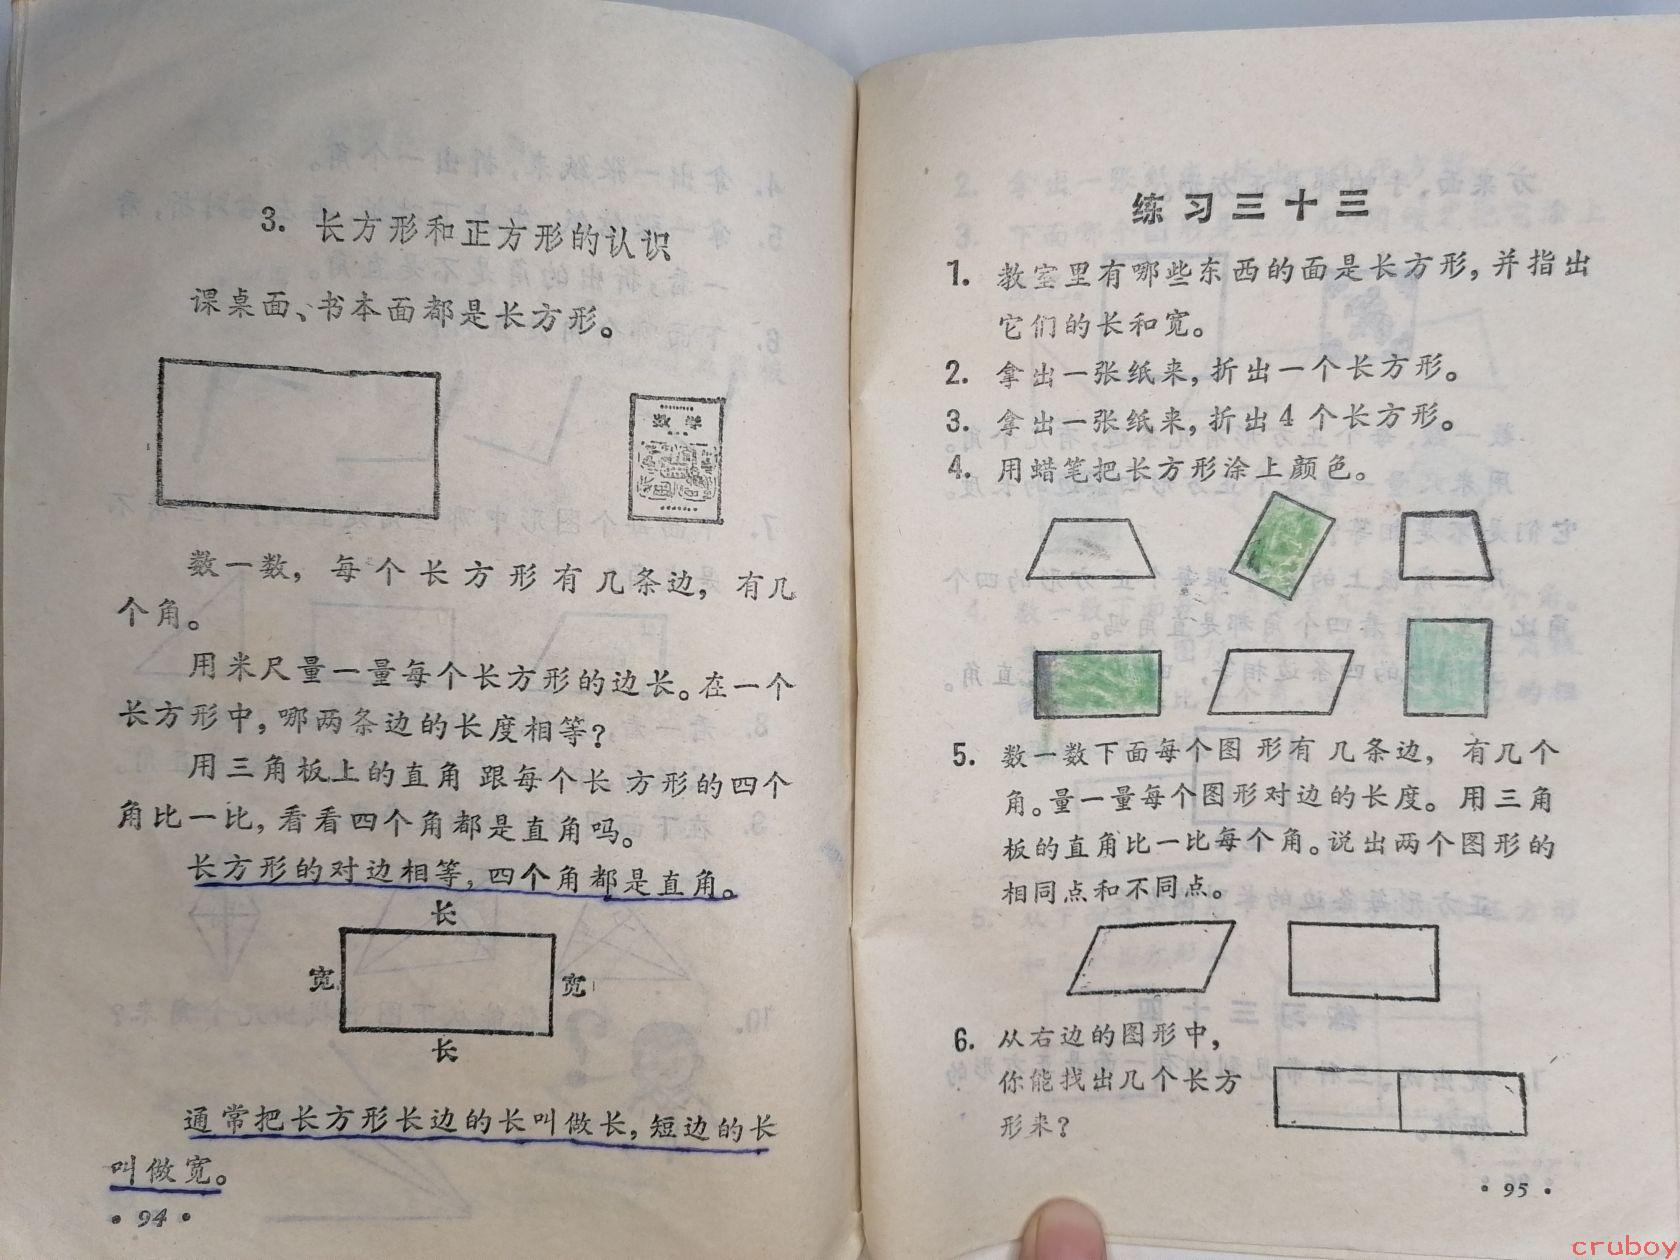 3. 长方形和正方形的认识
课桌面、书本面都是长方形。
数学
数一数，每个长方形有几条边，有几
个角。
用米尺量一量每个长方形的边长。在一个
长方形中，哪两条边的长度相等？
用三角板上的直角跟每个长方形的四个
角比一比，看看四个角都是直角吗。
长方形的对边相等，四个角都是直角。
长
宽
宽
长
通常把长方形长边的长叫做长，短边的长
叫做宽。
·94·
练习三十三
1. 教室里有哪些东西的面是长方形，并指出
它们的长和宽。
2. 拿出一张纸来，折出一个长方形。
3. 拿出一张纸来，折出4个长方形。
4. 用蜡笔把长方形涂上颜色。
5. 数一数下面每个图形有几条边，有几个
角。量一量每个图形对边的长度。用三角
板的直角比一比每个角。说出两个图形的
相同点和不同点。
6. 从右边的图形中，
你能找出几个长方
形来？
·95·
cruboy